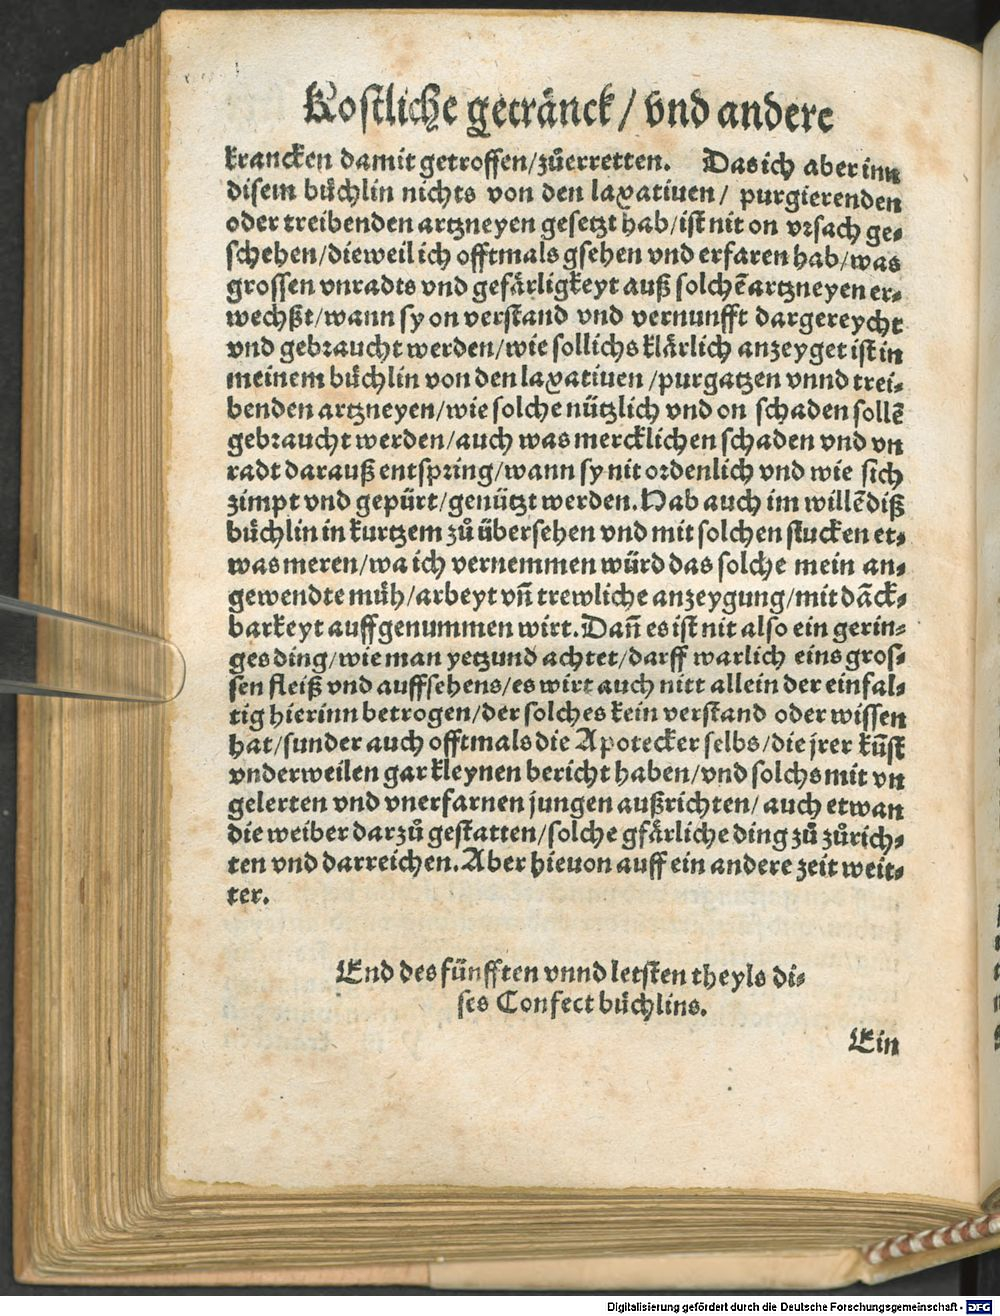 Kostliche getränck / vnd andere
krancken damit getroffen/zůerretten. Das ich aber inn
disem bůchlin nichts von den laxatiuen / purgierenden
oder treibenden artzneyen gesetzt hab/ist nit on vrsach ge⸗
schehen/dieweil ich offtmals gsehen vnd erfaren hab/was
grossen vnradts vnd gefårligkeyt auß solchē artzneyen er⸗
wechßt/wann sy on verstand vnd vernunfft dargereycht
vnd gebraucht werden/wie sollichs klårlich anzeyget ist in
meinem bůchlin von den laxatiuen /purgatzen vnnd trei⸗
benden artzneyen/wie solche nützlich vnd on schaden sollē
gebraucht werden/auch was mercklichen schaden vnd vn
radt darauß entspring/wann sy nit ordenlich vnd wie sich
zimpt vnd gepürt/genützt werden. Hab auch im willē diß
bůchlin in kurtzem zů übersehen vnd mit solchen stucken et⸗
was meren/wa ich vernemmen würd das solche mein an⸗
gewendte můh/arbeyt vñ trewliche anzeygung/mit dāck⸗
barkeyt auffgenummen wirt. Dañ es ist nit also ein gerin⸗
ges ding/wie man yetzund achtet/darff warlich eins gros⸗
sen fleiß vnd auffsehens/es wirt auch nitt allein der einfal⸗
tig hierinn betrogen/der solches kein verstand oder wissen
hat/sunder auch offtmals die Apotecker selbs/die jrer kūst
vnderweilen gar kleynen bericht haben/vnd solchs mit vn
gelerten vnd vnerfarnen jungen außrichten/ auch etwan
die weiber darzů gestatten/solche gfårliche ding zů zůrich⸗
ten vnd darreichen. Aber hieuon auff ein andere zeit weit⸗
ter.
End des fünfften vnnd letsten theyls di⸗
ses Confect bůchlins.
Ein
Digitalisierung gefördert durch die Deutsche Forschungsgemeinschaft - DFG